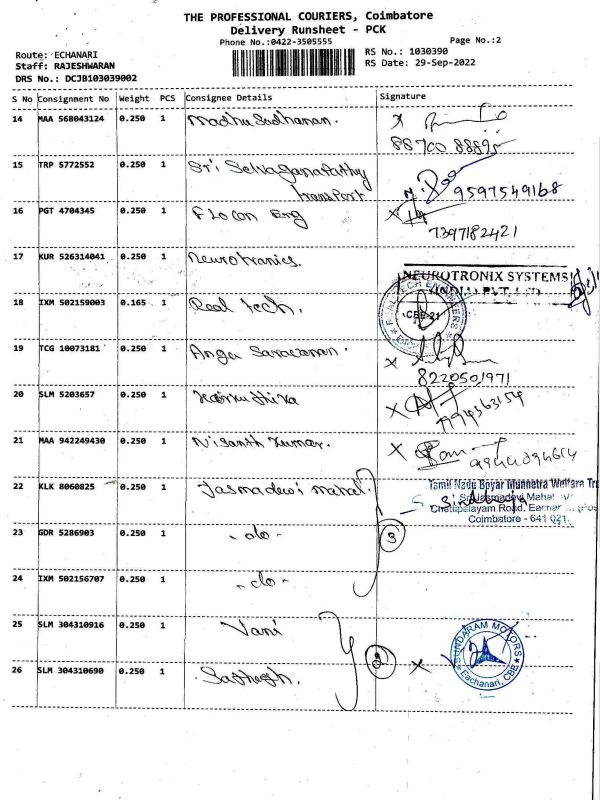 THE PROFESSIONAL COURIERS, Coimbatore
Delivery Runsheet - PCK
Phone No.:0422-3505555
Page No.:2
Route: ECHANARI
Staff: RAJESHWARAN
DRS No.: DCJB103039002
RS No.: 1030390
RS Date: 29-Sep-2022
S No Consignment No Weight PCS Consignee Details Signature
14 MAA 568043124 0.250 1 Madhu Sudhanan.
15 TRP 5772552 0.250 1 Sri Selvaganapathy
transport
9597549168
16 PGT 4704345 0.250 1 Flocon Eng
7397182421
17 KUR 526314041 0.250 1 Neurotronics.
NEUROTRONIX SYSTEMS
(INDIA) PVT. LTD
18 IXM 502159003 0.165 1 Real tech.
CBE-21
19 TCG 10073181 0.250 1 Angu Saravanan.
8220501971
20 SLM 5203657 0.250 1
21 MAA 942249430 0.250 1 Nisanth kumar.
22 KLK 8060825 0.250 1 Jasmadevi mahal.
Tamil Nadu Boyar Munnetra Welfare Tru
Sri Jasmadevi Mahal
Chettipalayam Road, Eachanari (Po
Coimbatore - 641 021.
23 GDR 5286903 0.250 1 - do -
3
24 IXM 502156707 0.250 1 - do -
25 SLM 304310916 0.250 1 Vani
SUNDARAM MOTORS
Eachanari, CBE
26 SLM 304310690 0.250 1 Sathish.
2